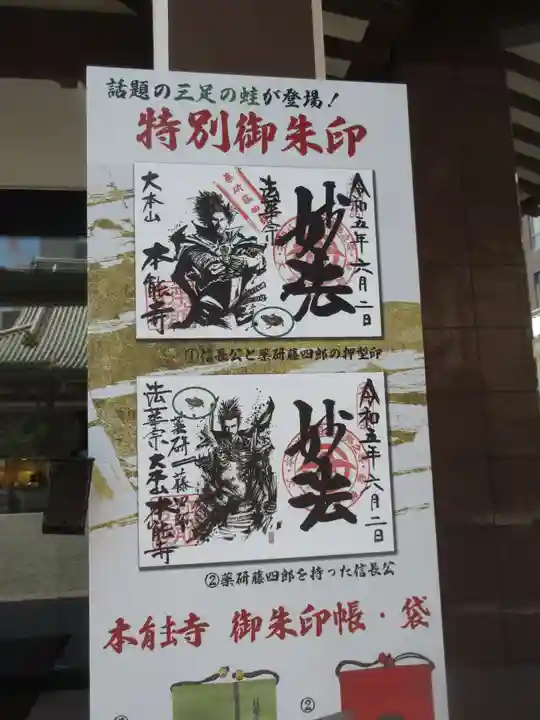 話題の三足の蛙が登場！
特別御朱印
令和五年六月二日
妙法
法華宗
薬研藤四郎
大本山
本能寺
①信長公と薬研藤四郎の押型印
令和五年六月二日
妙法
薬研藤四郎
法華宗大本山本能寺
②薬研藤四郎を持った信長公
本能寺 御朱印帳・袋
①
②